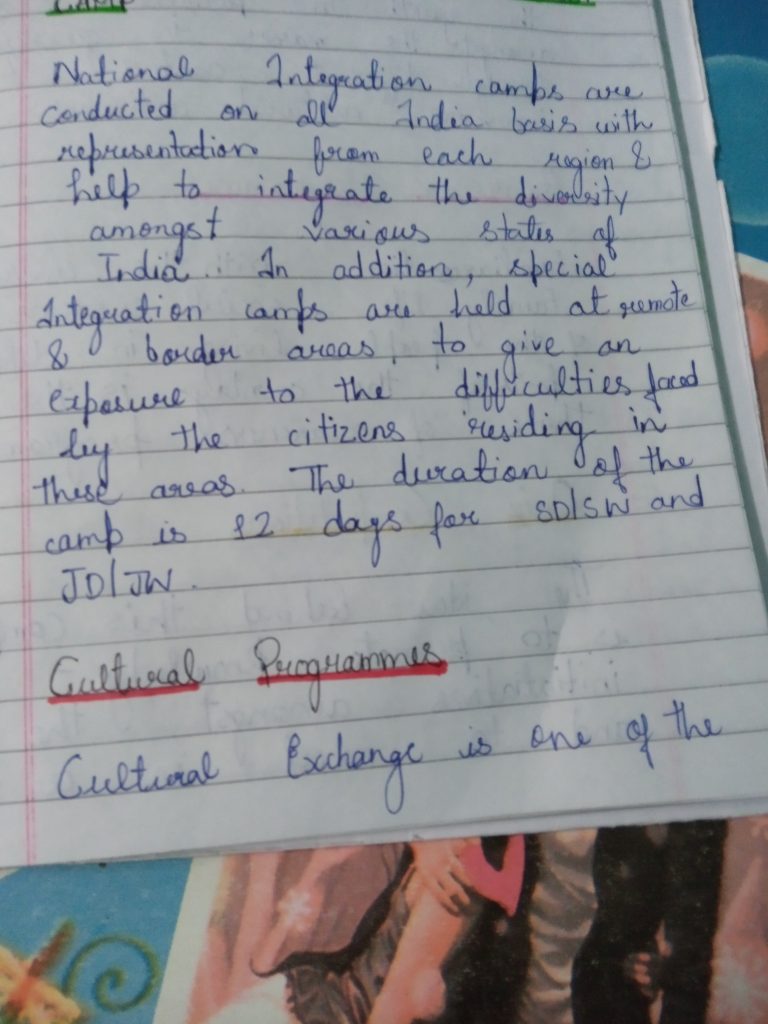 CAMP
National Integration camps are
conducted on all India basis with
representation from each region &
help to integrate the diversity
amongst various states of
India. In addition, special
Integration camps are held at remote
& border areas, to give an
exposure to the difficulties faced
by the citizens residing in
these areas. The duration of the
camp is 12 days for SD/SW and
JD/JW.
Cultural Programmes
Cultural Exchange is one of the